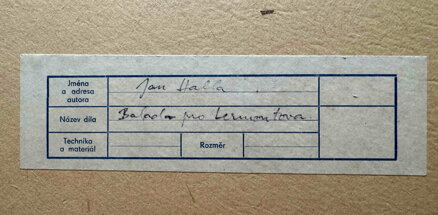 Jména
a adresa
autora
Jan Halla
Název díla
Balada pro Lermontova
Technika
a materiál
Rozměr